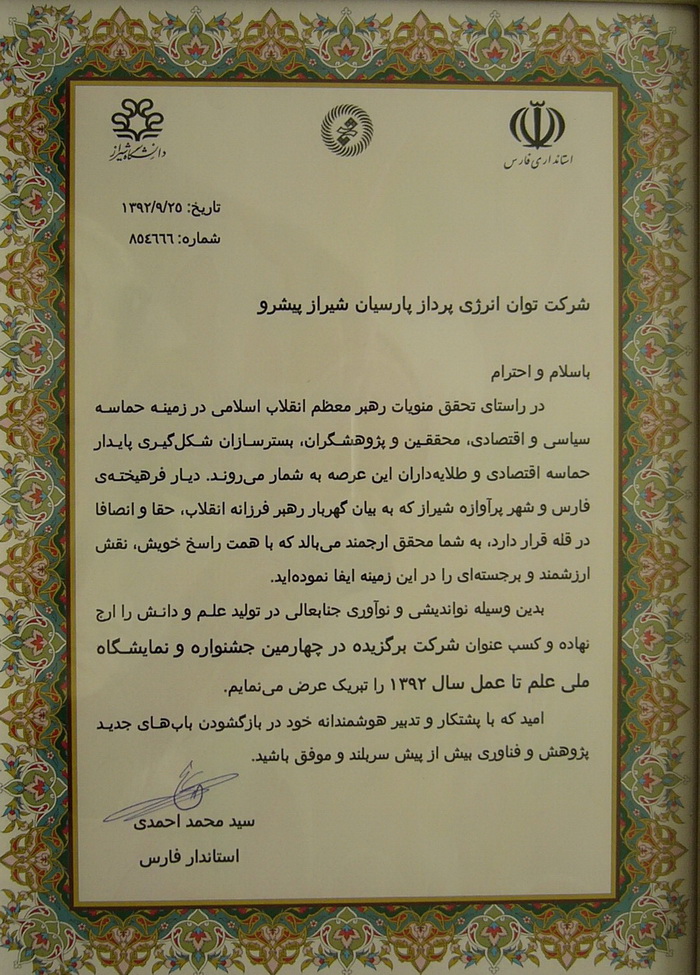 دانشگاه شیراز
استانداری فارس
تاریخ: ۱۳۹۲/۹/۲۵
شماره: ۸۵٤٦٦٦
شرکت توان انرژی پرداز پارسیان شیراز پیشرو
باسلام و احترام
در راستای تحقق منویات رهبر معظم انقلاب اسلامی در زمینه حماسه
سیاسی و اقتصادی، محققین و پژوهشگران، بسترسازان شکل‌گیری پایدار
حماسه اقتصادی و طلایه‌داران این عرصه به شمار می‌روند. دیار فرهیخته‌ی
فارس و شهر پرآوازه شیراز که به بیان گهربار رهبر فرزانه انقلاب، حقا و انصافا
در قله قرار دارد، به شما محقق ارجمند می‌بالد که با همت راسخ خویش، نقش
ارزشمند و برجسته‌ای را در این زمینه ایفا نموده‌اید.
بدین وسیله نواندیشی و نوآوری جنابعالی در تولید علم و دانش را ارج
نهاده و کسب عنوان شرکت برگزیده در چهارمین جشنواره و نمایشگاه
ملی علم تا عمل سال ۱۳۹۲ را تبریک عرض می‌نمایم.
امید که با پشتکار و تدبیر هوشمندانه خود در بازگشودن باب‌های جدید
پژوهش و فناوری بیش از پیش سربلند و موفق باشید.
سید محمد احمدی
استاندار فارس